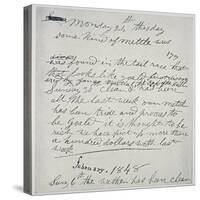 Monday 24th this day
some kind of mettle was
found in the tail race that
that looks like goald
Sunday 30 clear & has been
all the last week our metal
has been tride and proves to
be goald it is thought to be
rich we have pict up more than
a hundred dollars woth last
week
February. 1848
Sun 6th the wether has been clear